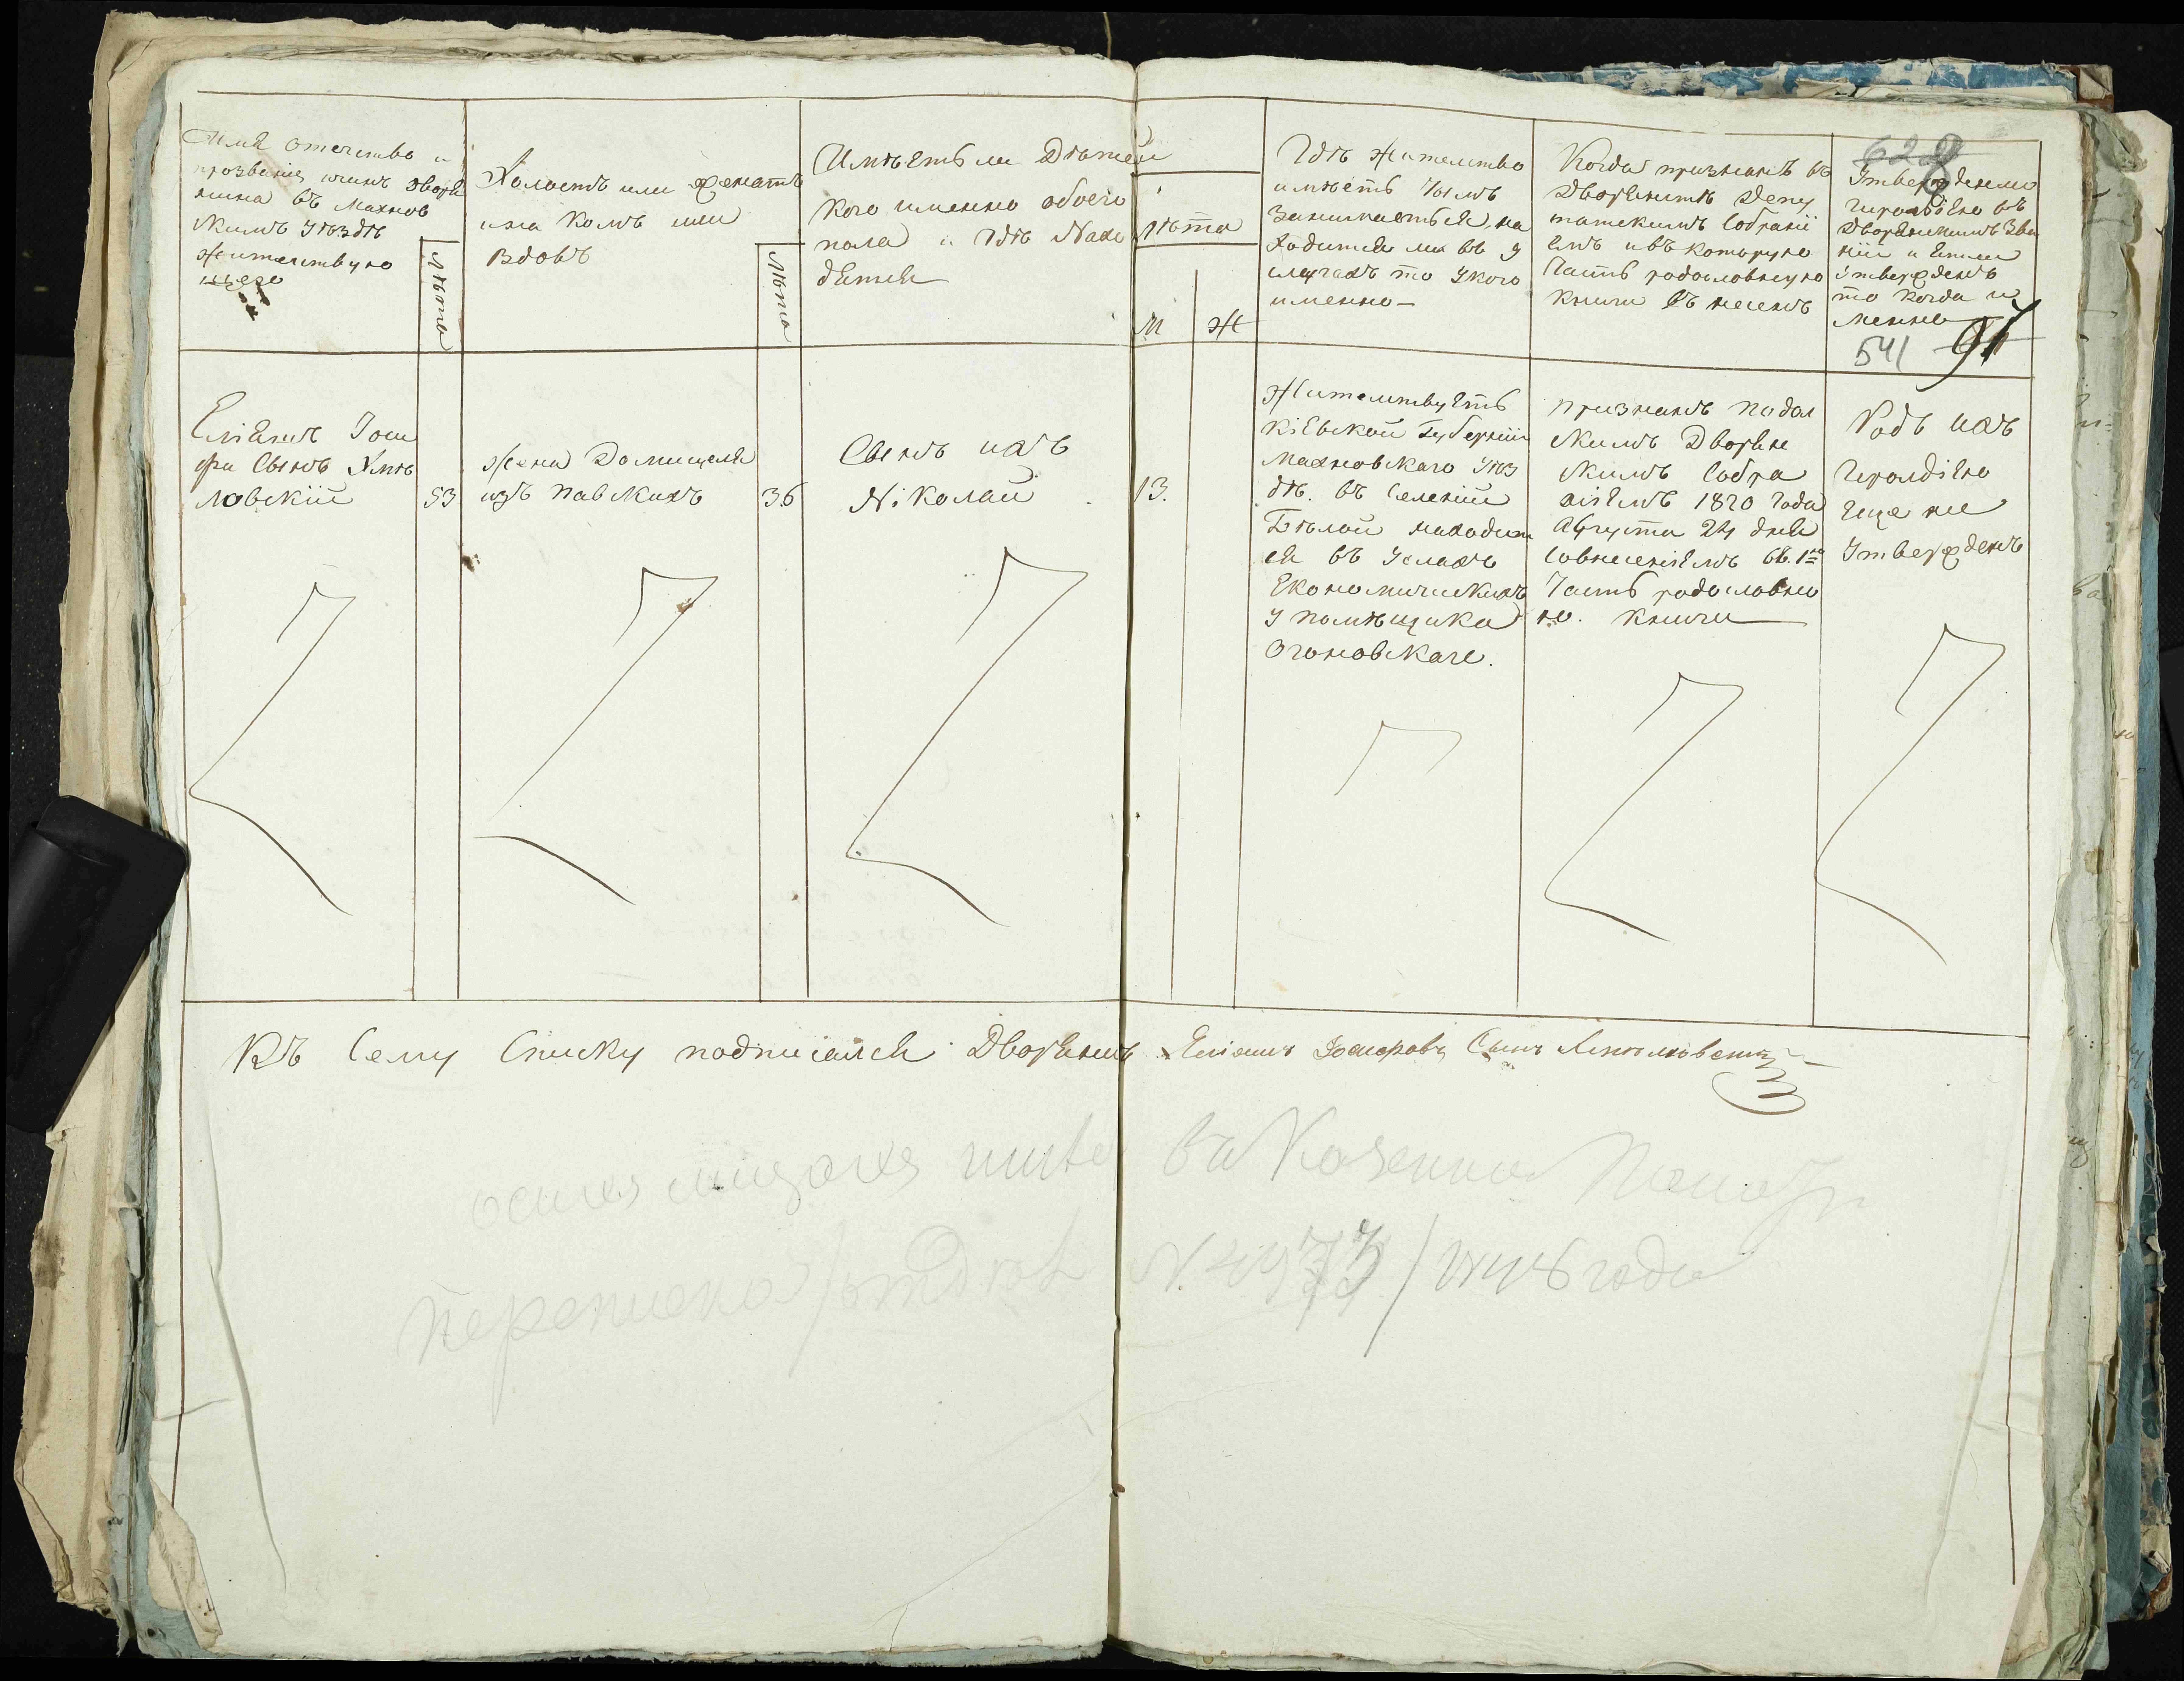 Имя отечество и
прозваніе чинъ дворя
нина въ Махнов
скимъ уѣздѣ
жительствую
щего
Лѣта
Холостъ или женатъ
и на комъ или
вдовъ
Лѣта
Имѣетъ ли Дѣтей
кого именно обоего
пола и гдѣ нахо
дятся
Лѣта
М
Ж
Гдѣ жительство
имѣетъ чымъ
занимается, на
ходится ли въ у
слугахъ то у кого
именно
Когда признанъ въ
Дворянствѣ Депу
татскимъ Собрані
ємъ и въ которую
Часть родословную
книги въ несенъ
628
Утвержденъ ли
Герольдією въ
Дворянскимъ Зва
ніи и если
утвержденъ
то когда и
менно
541 91
Еліяшъ Іоси
фа Сынъ
ловскій
53
жена Домицеля
изъ Павскихъ
36
Сынъ ихъ
Николай
13.
Жительствуетъ
Кіевской Губерніи
Махновскаго Уѣз
дѣ. въ Селеніи
Бѣлой находит
ся въ услахъ
Економическихъ
у помѣщика
Огоновскаго.
признанъ Подол
скимъ Дворян
скимъ Собра
ніємъ 1820 года
Августа 24 дня
совнесеніємъ въ 1ю
Часть родословно
ю. книги
Родъ ихъ
Герольдією
еще не
утвержденъ
Къ Сему Списку подписался Дворянинъ Еліяшъ Іосифовъ Сынъ
въ Казенной
переписка отд № 73 года